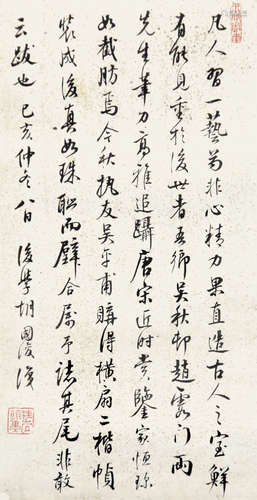 凡人習一藝苟非心精力果直造古人之室鮮
有能見重於後世者吾鄉吳秋卸趙雲門兩
先生筆力高雅追躡唐宋近時賞鑒家恒珍
如截肪焉今秋執友吳平甫購得橫扇二楷幀
裝成後真如珠聯而璧合屬予誌其尾非敢
云跋也己亥仲冬八日後學胡國濬